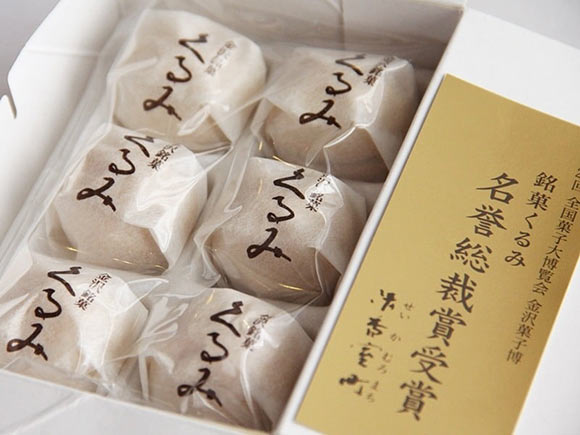 金沢銘菓
くるみ
金沢銘菓
くるみ
金沢銘菓
くるみ
金沢銘菓
くるみ
金沢銘菓
くるみ
金沢銘菓
くるみ
回 全国菓子大博覧会 金沢菓子博
銘菓くるみ
名誉総裁賞受賞
清香室町
せい か むろ まち